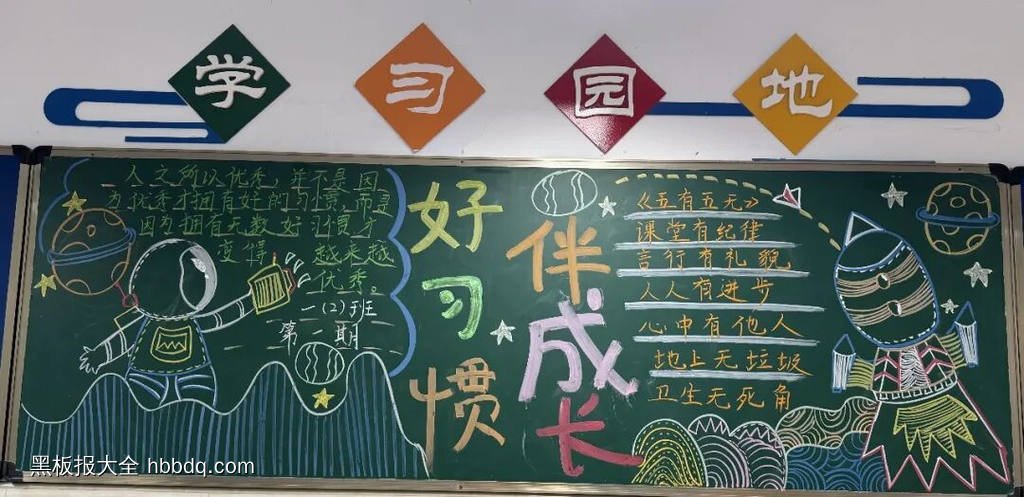 学习园地
人之所以优秀,并不是因
为优秀才拥有好的习惯,而是
因为拥有无数好习惯,才
变得 越来越
优秀。
一(2)班
第一期
好习惯
伴成长
《五有五无》
课堂有纪律
言行有礼貌
人人有进步
心中有他人
地上无垃圾
卫生无死角
黑板报大全 hbbdq.com